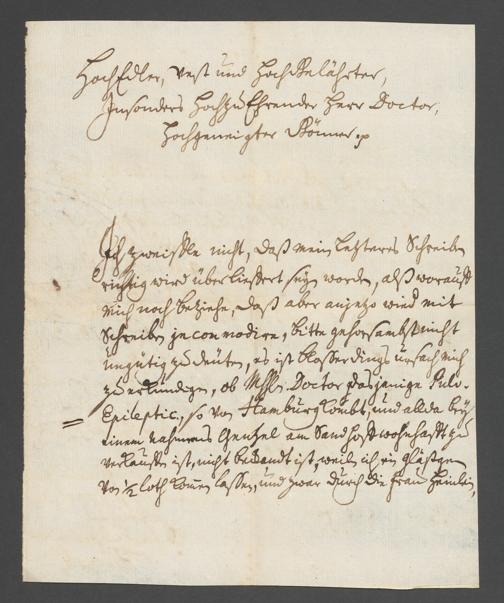 HochEdler, Vest und HochGelährter,
Jnsonders HochzuEhrender Herr Doctor,
Hochgeneigter Gönner.
Jch zweiffle nicht, daß mein letzteres Schreiben
richtig wird überlieffert seyn worden, alß worauff
mich noch beziehe, daß aber anjetzo wied mit
Schreiben incommodire, bitte gehorsambst nicht
ungütig zu deuten, es ist blosserdings ursach mich
zu erkundigen, ob Doctor dasjenige Pulv.
Epileptic., so von Hamburg kombt, und allda bey
einem nahmens Gentzel am Sandhoff wohnhafft zu
verkauffen ist, nicht bekandt ist, weilen ich ein gläßgen
von ½ loth kom̅en lassen, und zwar durch die Frau Heinlein,